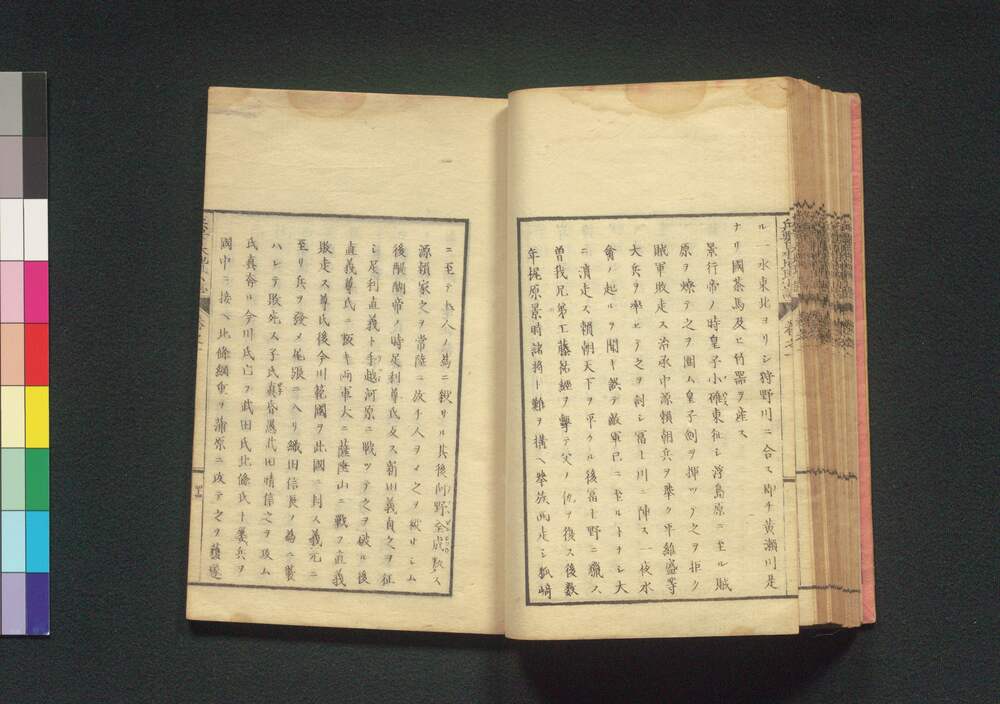 ル一水東北ヨリシ狩野川ニ合ス即チ黄瀬川是
ナリ國茶馬及ヒ竹器ヲ産ス
景行帝ノ時皇子小碓東征シ浮島原ニ至ル賊
原ヲ燎テ之ヲ圍ム皇子劍ヲ揮ツテ之ヲ拒ク
賊軍敗走ス治承中源頼朝兵ヲ挙ク平維盛等
大兵ヲ率ヒテ之ヲ討シ冨士川ニ陣ス一夜水
禽ノ起ルヲ聞キ誤テ敵軍已ニ至ルトオシ大
ニ潰走ス頼朝天下ヲ平クル後冨士野ニ獵ス
曽我兄弟工藤祐經ヲ撃テ父ノ仇ヲ復ス後数
年梶原景時諸将ト難ヲ構ヘ挙族西走シ狐﨑
ニ至テ人ノ爲ニ殺サル其後阿野全成教ス
源頼家之ヲ常陸ニ放チ人ヲメ之ヲ殺サシム
後醍醐帝ノ時足利尊氏反ス新田義貞之ヲ征
シ足利直義ト手越河原ニ戰ツテ之ヲ破ル後
直義尊氏ニ叛キ両軍大ニ薩埵山ニ戰フ直義
敗走ス尊氏後今川範國ヲ此國ニ封ス義元ニ
至リ兵ヲ發メ尾張ニ入リ織田信長ノ爲ニ襲
ハレテ敗死ス子氏真昏愚武田晴信之ヲ攻ム
氏真奔ル今川氏亡フ武田氏北條氏ト屡兵ヲ
國中ニ接ヘ北條綱重ヲ蒲原ニ攻テ之ヲ